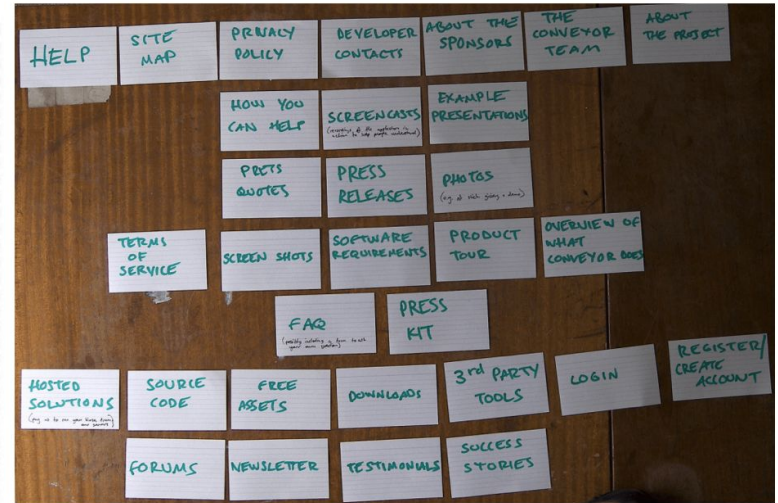 HELP
SITE
MAP
PRIVACY
POLICY
DEVELOPER
CONTACTS
ABOUT THE
SPONSORS
THE
CONVEYOR
TEAM
ABOUT
THE PROJECT
HOW YOU
CAN HELP
SCREENCASTS
EXAMPLE
PRESENTATIONS
PRESS
QUOTES
PRESS
RELEASES
PHOTOS
(e.g. of rich giving a demo)
TERMS
OF
SERVICE
SCREEN SHOTS
SOFTWARE
REQUIREMENTS
PRODUCT
TOUR
OVERVIEW OF
WHAT
CONVEYOR DOES
FAQ
(possibly including a form to ask
your own question)
PRESS
KIT
HOSTED
SOLUTIONS
SOURCE
CODE
FREE
ASSETS
DOWNLOADS
3rd PARTY
TOOLS
LOGIN
REGISTER/
CREATE
ACCOUNT
FORUMS
NEWSLETTER
TESTIMONIALS
SUCCESS
STORIES